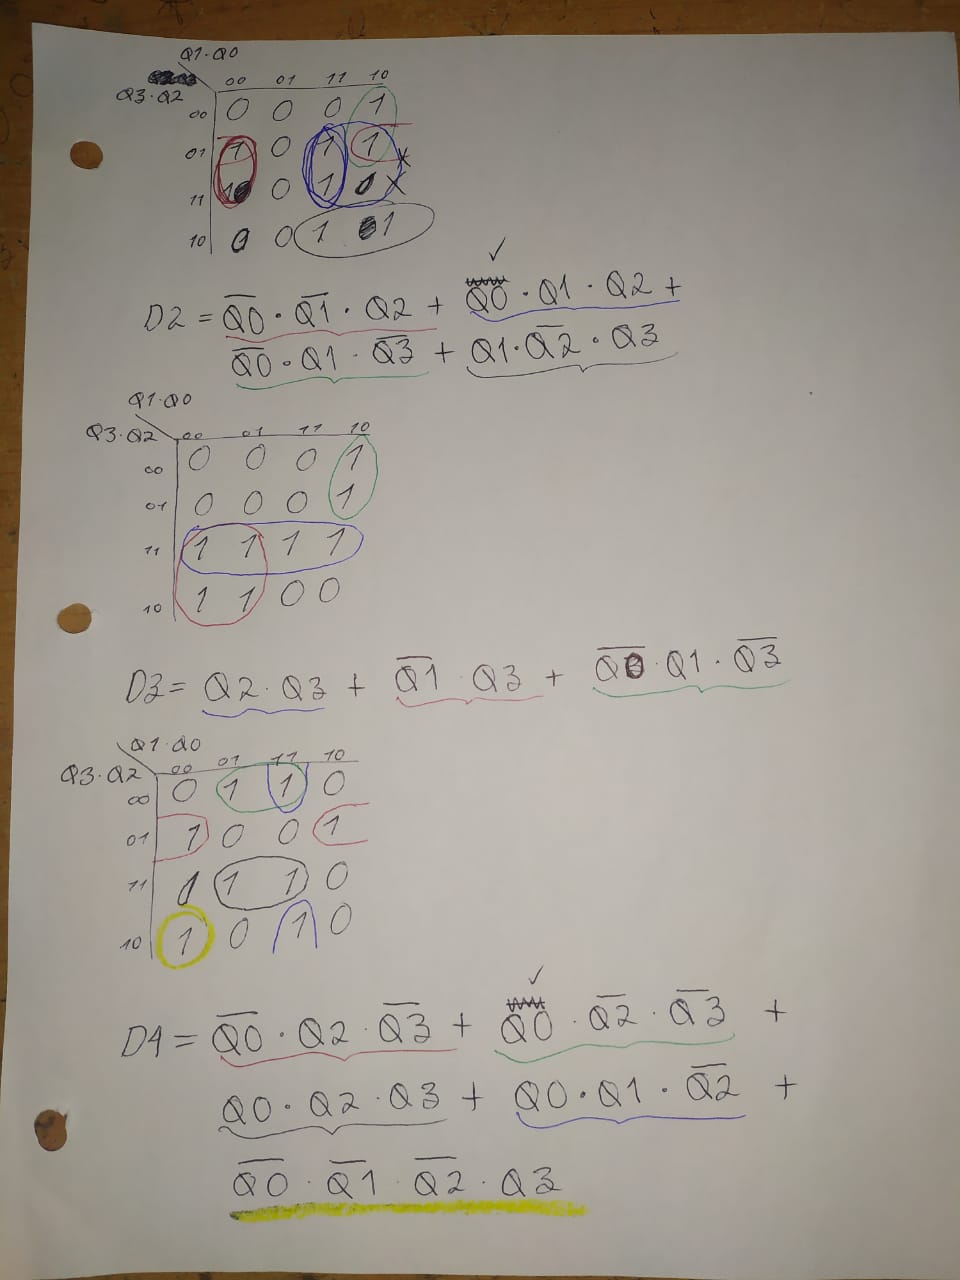 Q1·Q0
Q3·Q2 00 01 11 10
00 0 0 0 1
01 1 0 1 1 x
11 1 0 1 0 x
10 0 0 1 1
✓
D2 = Q̅0̅ · Q̅1̅ · Q2 + Q0 · Q1 · Q2 +
Q̅0̅ · Q1 · Q̅3̅ + Q1 · Q̅2̅ · Q3
Q1·Q0
Q3·Q2 00 01 11 10
00 0 0 0 1
01 0 0 0 1
11 1 1 1 1
10 1 1 0 0
D3 = Q2 · Q3 + Q̅1̅ · Q3 + Q̅0̅ · Q1 · Q̅3̅
Q1·Q0
Q3·Q2 00 01 11 10
00 0 1 1 0
01 1 0 0 1
11 0 1 1 0
10 1 0 1 0
✓
D4 = Q̅0̅ · Q2 · Q̅3̅ + Q0 · Q̅2̅ · Q̅3̅ +
Q0 · Q2 · Q3 + Q0 · Q1 · Q̅2̅ +
Q̅0̅ · Q̅1̅ · Q̅2̅ · Q3